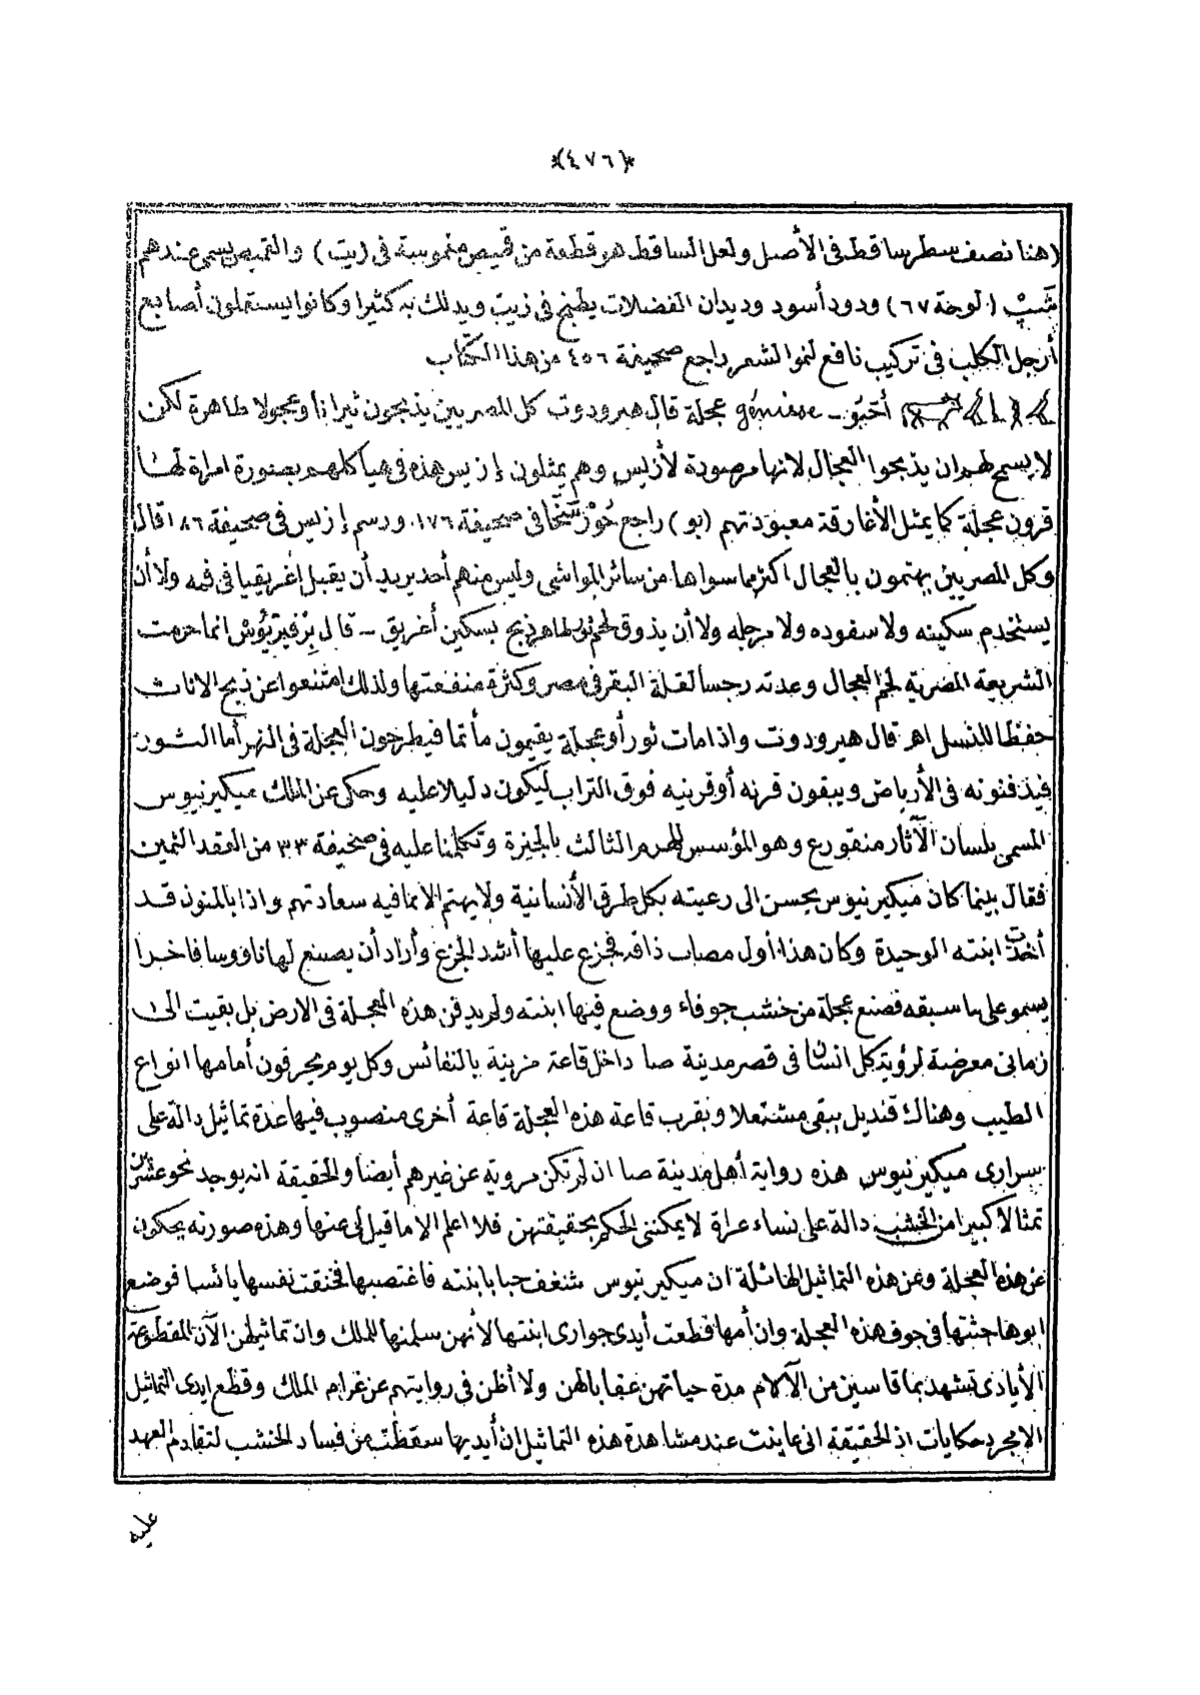 ﴿٤٧٦﴾
(هنا نصف سطر ساقط في الأصل ولعل الساقط هو قطعة من قميص مغموسة في زيت) والقميص يسمى عندهم
شَبِّ (لوحة ٦٧) ودود أسود وديدان الفضلات يطبخ في زيت ويدلك به كثيرا وكانوا يستعملون أصابع
أرجل الكلب في تركيب نافع لنمو الشعر راجع صحيفة ٤٥٦ من هذا الكتاب
أختبو - génisse عجلة قال هيرودوت كل المصريين يذبحون ثيرانا وعجولا طاهرة لكن
لا يسمح لهم ان يذبحوا العجال لانها مرصودة لأزيس وهم يمثلون إزيس هذه في هياكلهم بصورة امراة لها
قرون عجلة كما يمثل الأغارقة معبودتهم (يو) راجع في صحيفة ١٧٦ ورسم إزيس في صحيفة ١٨٦ قال
وكل المصريين يهتمون بالعجال اكثر مما سواها من سائر المواشى وليس منهم أحد يريد أن يقبل إغريقيا في فمه ولا أن
يستخدم سكينه ولا سفوده ولا مرجله ولا أن يذوق لحم ثور طاهر ذبح بسكين أغريق - قال برفيريوش انما حرمت
الشريعة المصرية لحم العجال وعدته رجسا لقلة البقر في مصر وكثرة منفعتها ولذلك امتنعوا عن ذبح الاناث
حفظا للنسل اهـ قال هيرودوت واذا مات ثور أو عجلة يقيمون مأتما فيطرحون العجلة في النهر أما الثور
فيدفنونه في الأرباض ويبقون قرنه أو قرنيه فوق التراب ليكون دليلا عليه وحكى عن الملك ميكيرنيوس
المسمى بلسان الآثار منقورع وهو المؤسس للهرم الثالث بالجيزة وتكلمنا عليه في صحيفة ٣٣ من العقد الثمين
فقال بينما كان ميكيرنيوس يحسن الى رعيته بكل طرق الأنسانية ولا يهتم الا بما فيه سعادتهم واذا بالمنون قد
أخذت ابنته الوحيدة وكان هذا أول مصاب ذاقه فجزع عليها أشد الجزع وأراد أن يصنع لها ناووسا فاخرا
يسمو على ما سبقه فصنع عجلة من خشب جوفاء ووضع فيها ابنته ولم يدفن هذه العجلة في الارض بل بقيت الى
زمانى معرضة لرؤية كل انسان في قصر مدينة صا داخل قاعة مزينة بالنفائس وكل يوم يحرقون أمامها انواع
الطيب وهناك قنديل يبقى مشتعلا وبقرب قاعة هذه العجلة قاعة أخرى منصوب فيها عدة تماثيل دالة على
سرارى ميكيرنيوس هذه رواية أهل مدينة صا ان لم تكن مروية عن غيرهم أيضا والحقيقة انه يوجد نحو عشرين
تمثالا كبيرا من الخشب دالة على نساء عراة لا يمكننى الحكم بحقيقتهن فلا اعلم الا ما قيل لى عنها وهذه صورته يحكون
عن هذه العجلة وعن هذه التماثيل الهائلة ان ميكيرنيوس شغف حبا بابنته فاغتصبها فخنقت نفسها يائسا فوضع
ابوها جثتها في جوف هذه العجلة وان أمها قطعت أيدى جوارى ابنتها لأنهن سلمنها للملك وان تماثيلهن الآن المقطوعة
الأيادى تشهد بما قاسين من الآلام مدة حياتهن عقابا لهن ولا أظن في روايتهم عن غرام الملك وقطع ايدى التماثيل
الا مجرد حكايات اذ الحقيقة انى عاينت عند مشاهدة هذه التماثيل ان أيديها سقطت من فساد الخشب لتقادم العهد
عليه